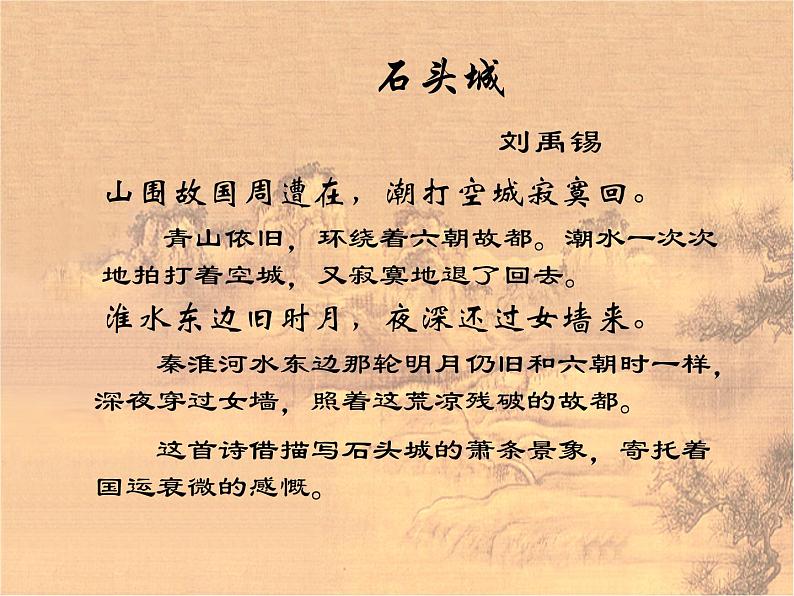 石头城
刘禹锡
山围故国周遭在，潮打空城寂寞回。
青山依旧，环绕着六朝故都。潮水一次次
地拍打着空城，又寂寞地退了回去。
淮水东边旧时月，夜深还过女墙来。
秦淮河水东边那轮明月仍旧和六朝时一样，
深夜穿过女墙，照着这荒凉残破的故都。
这首诗借描写石头城的萧条景象，寄托着
国运衰微的感慨。